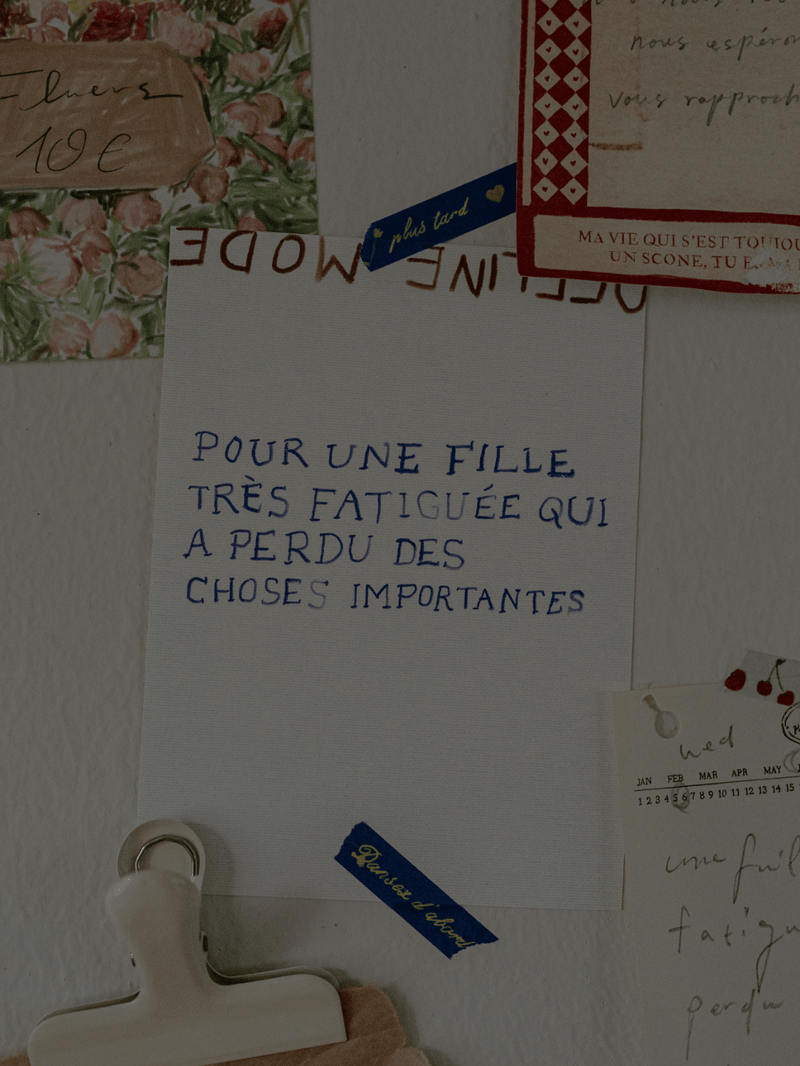 Fluers
10 €
nous espéron
vous rapproch
plus tard
MA VIE QUI S'EST TOUJOU
UN SCONE, TU E
DÉCLINE MODE
POUR UNE FILLE
TRÈS FATIGUÉE QUI
A PERDU DES
CHOSES IMPORTANTES
wed
JAN FEB MAR APR MAY
1 2 3 4 5 6 7 8 9 10 11 12 13 14 15
une fill
fatigu
perdu
Dansez d'abord